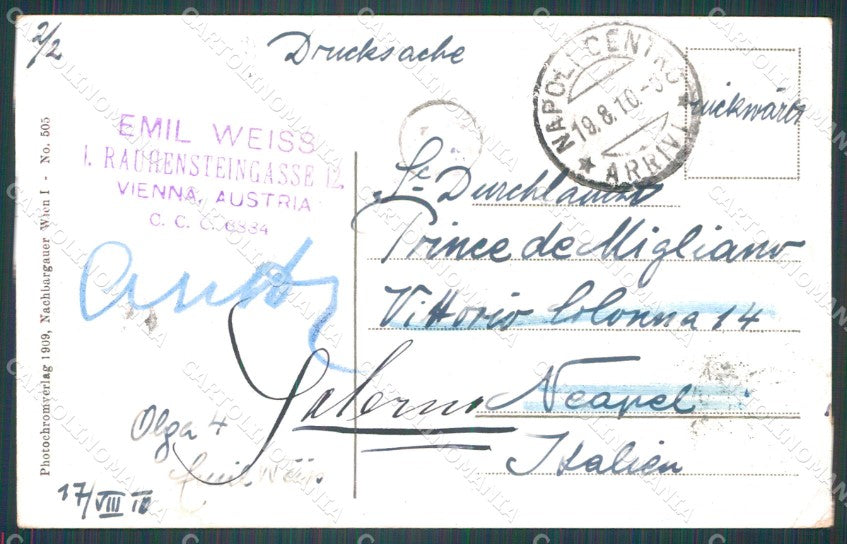 2/2
Drucksache
NAPOLI CENTRO
19.8.10
ARRIVI
rückwärts
EMIL WEISS
I. RAUHENSTEINGASSE 12.
VIENNA, AUSTRIA
C. C. C. 6884
Sr Durchlaucht
Prince de Migliano
Vittorio Colonna 14
Neapel
Italien
Salerno
Olga +
Emil Weiss
17/VIII 10
Photochromverlag 1909, Nachbargauer Wien I - No. 505
CARTOLINOMANIA